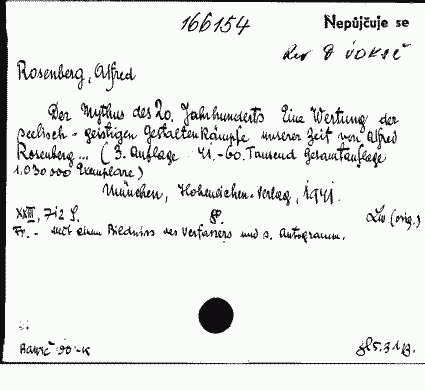 166154
Nepůjčuje se
Rev
Rosenberg, Alfred
Der Mythus des 20. Jahrhunderts Eine Wertung der
seelisch-geistigen Gestaltenkämpfe unserer Zeit von Alfred
Rosenberg... (3. Auflage 41.-60. Tausend Gesamtauflage
1,030.000 Exemplare)
München, Hoheneichen-Verlag, 1941.
XXIII, 712 S. 8°. Lw (orig.)
Fr. - Mit einem Bildniss des Verfassers und s. Autogramm.